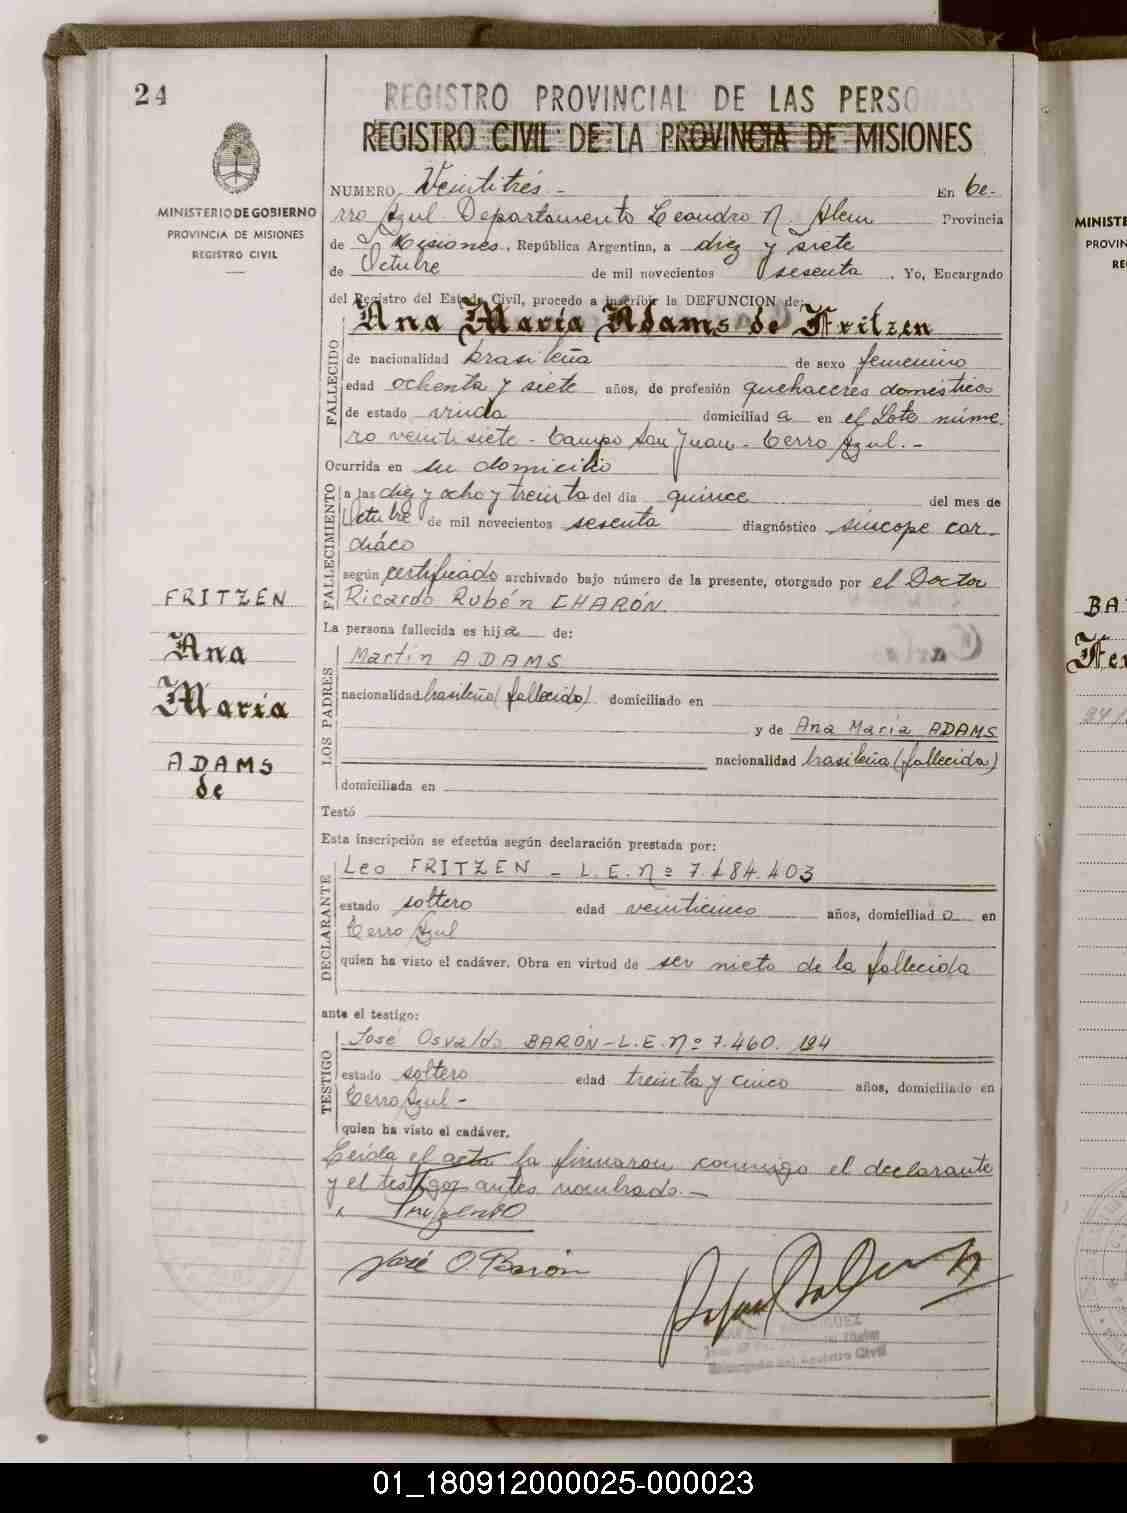 24
REGISTRO PROVINCIAL DE LAS PERSONAS
REGISTRO CIVIL DE LA PROVINCIA DE MISIONES
MINISTERIO DE GOBIERNO
PROVINCIA DE MISIONES
REGISTRO CIVIL
NUMERO Veintitrés.- En Ce-
rro Azul Departamento Leandro N. Alem Provincia
de Misiones, República Argentina, a diez y siete
de Octubre de mil novecientos sesenta. Yo, Encargado
del Registro del Estado Civil, procedo a inscribir la DEFUNCION de:
FALLECIDO
Ana María Adams de Fritzen
de nacionalidad brasileña de sexo femenino
edad ochenta y siete años, de profesión quehaceres domésticos
de estado viuda domiciliad a en el Lote núme-
ro veintisiete - Campo San Juan - Cerro Azul.-
Ocurrida en su domicilio
FALLECIMIENTO
a las diez y ocho y treinta del día quince del mes de
Octubre de mil novecientos sesenta diagnóstico síncope car-
díaco
según certificado archivado bajo número de la presente, otorgado por el Doctor
Ricardo Rubén CHARÓN.
La persona fallecida es hij a de:
LOS PADRES
Martín ADAMS
nacionalidad brasileño (fallecido) domiciliado en
y de Ana María ADAMS
nacionalidad brasileña (fallecida)
domiciliada en
Testó
Esta inscripción se efectúa según declaración prestada por:
DECLARANTE
Leo FRITZEN - L.E.Nº 7.484.403
estado soltero edad veinticinco años, domiciliad o en
Cerro Azul
quien ha visto el cadáver. Obra en virtud de ser nieto de la fallecida
ante el testigo:
TESTIGO
José Osvaldo BARÓN - L.E.Nº 7.460.194
estado soltero edad treinta y cinco años, domiciliado en
Cerro Azul -
quien ha visto el cadáver.
Leída el acta la firmaron conmigo el declarante
y el testigo antes nombrado.-
José O. Barón
Encargado del Registro Civil
FRITZEN
Ana
María
ADAMS
de
MINISTE
PROVIN
RE
BA
01_180912000025-000023